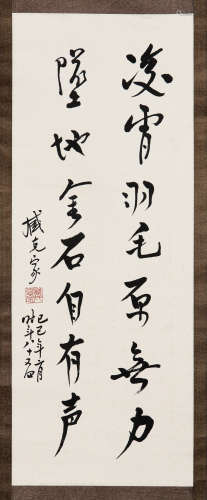 凌霄羽毛原無力
墜地金石自有声
臧克家
己巳年
时年八十五